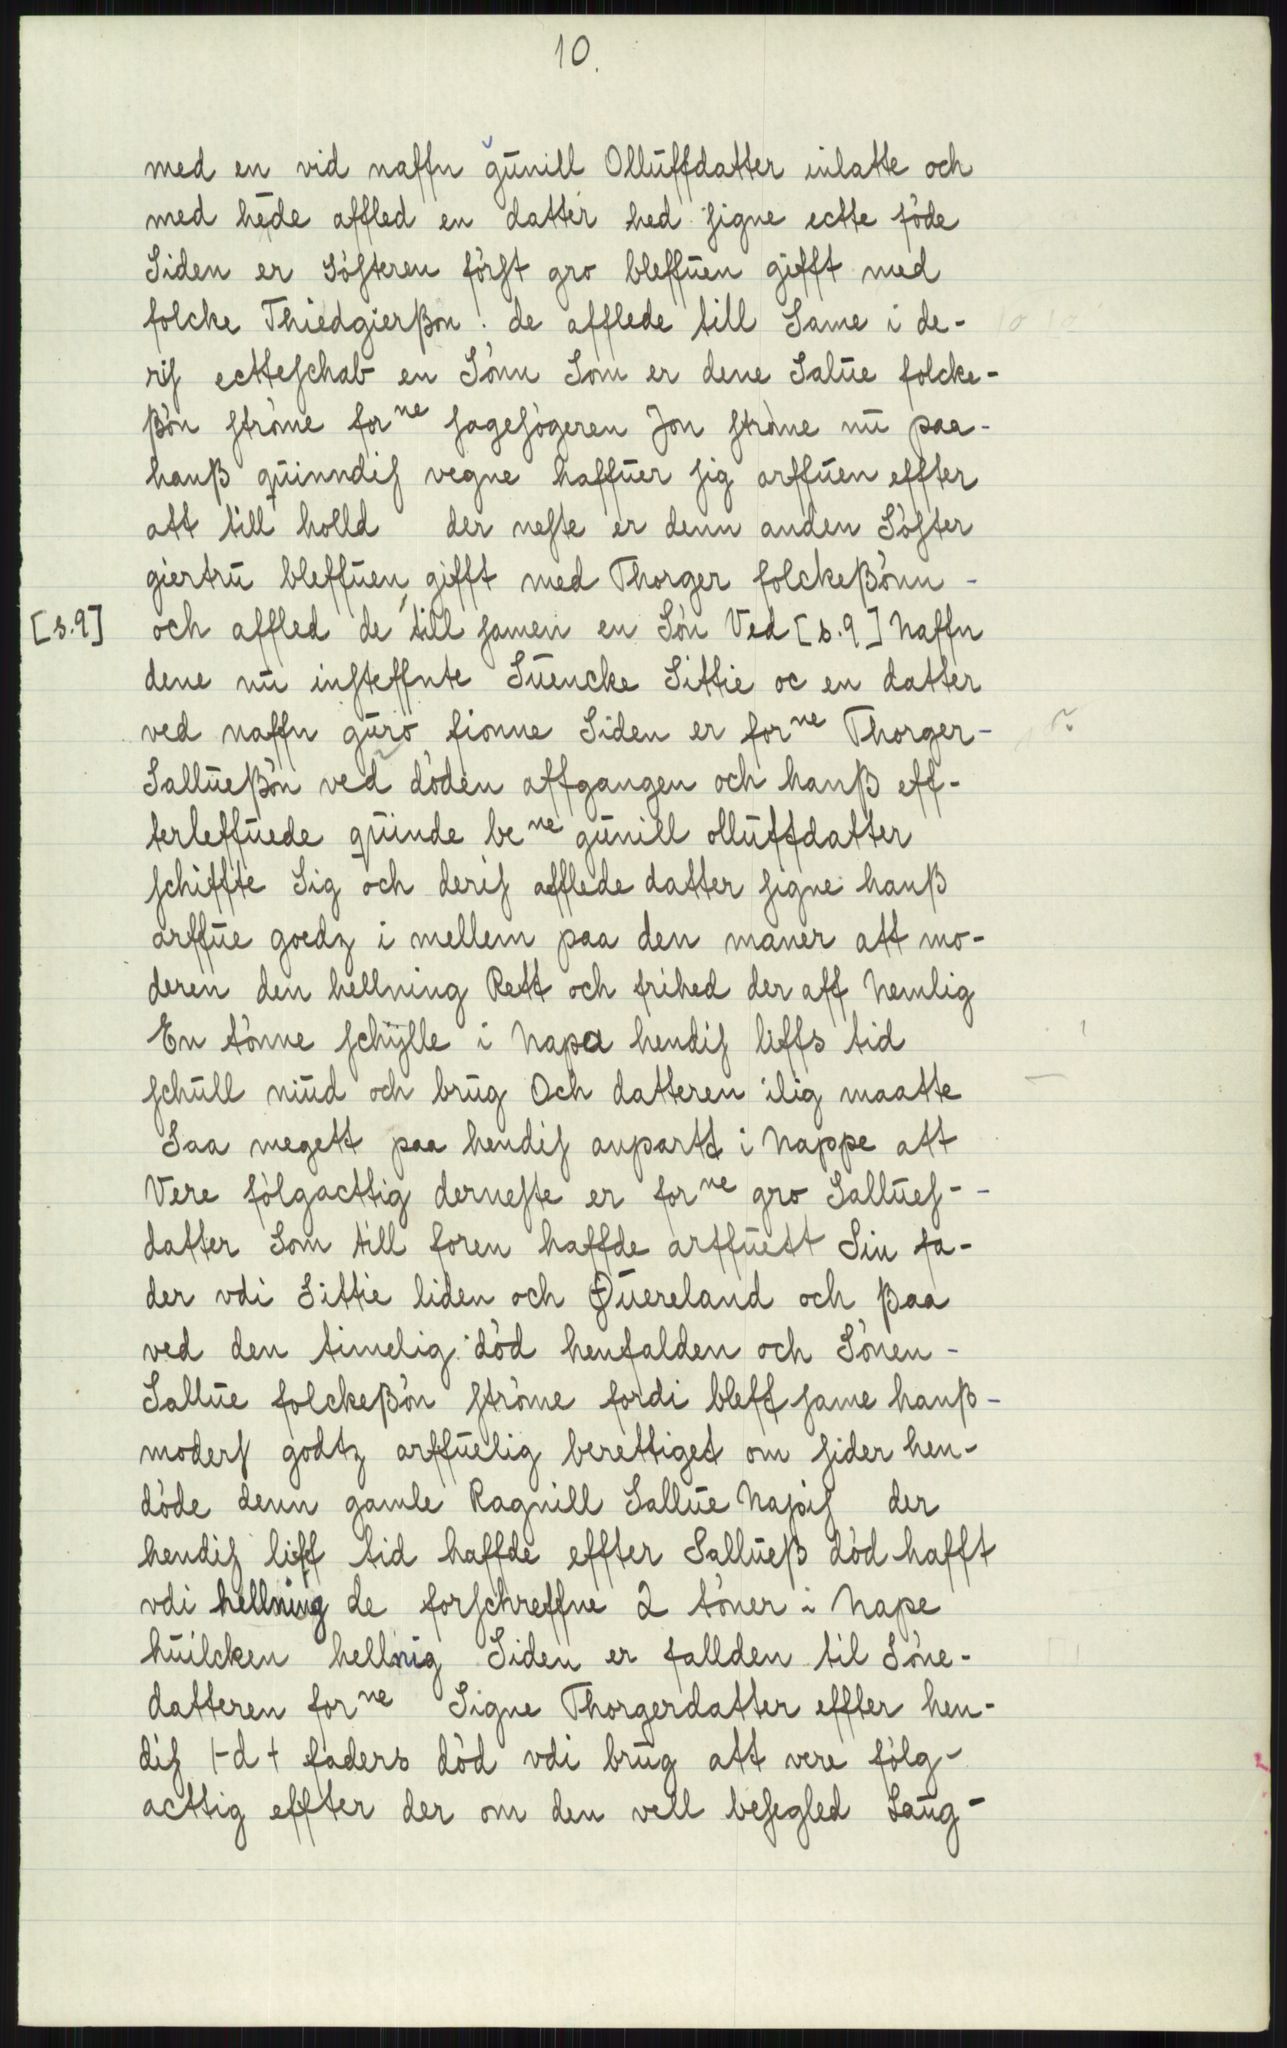 10.
med en vid naffn gunill Olluffdatter inlatte och
med hede affled en datter hed signe ectte föde
Siden er Sösteren först gro bleffuen gifft med
folcke Thiedgierßon . de afflede till Same i de-
ris ectteschab en Sönn Som er dene Salue folcke-
ßön ströme forne sagesögeren Jon ströme nu paa-
hanß quinndis vegne haffuer sig arffuen effter
att till holld der neste er denn anden Söster
giertru bleffuen gifft med Thorger folckeßönn -
[s.9] och affled de till samen en Sön Ved [s.9] Naffn
dene nu insteffnte Suencke Sittie oc en datter
ved naffn guro fionne Siden er forne Thorger-
Sallueßön ved döden affgangen och hanß eff-
terleffuede quinde bene gunill olluffdatter
schiffte Sig och deris afflede datter signe hanß
arffue goedz i mellem paa den maner att mo-
deren den hellning Rett och frihed der aff Nemlig
En tönne schylle i Napa hendis liffs tid
schull niud och brug Och datteren ilig maatte
Saa megett paa hendis anpartt i Nappe att
Vere fölgacttig derneste er forne gro Sallues--
datter Som till foren haffde arffuett Sin fa-
der vdi Sittie liden och Quereland och ßaa
ved den timelig död henfalden och Sönen-
Sallue folckeßön ströme fordi bleff same hanß-
moders godtz arffuelig berettiget om sider hen-
döde denn gamle Ragnill Sallue Napis der
hendis liff tid haffde effter Sallueß död hafft
vdi hellning de forschreffne 2 töner i Nape
huilcken hellnig Siden er fallden til Söne-
datteren forne Signe Thorgerdatter effter hen-
dis |-d+ faders död vdi brug att vere fölg-
acttig effter der om den vell besegled Laug-